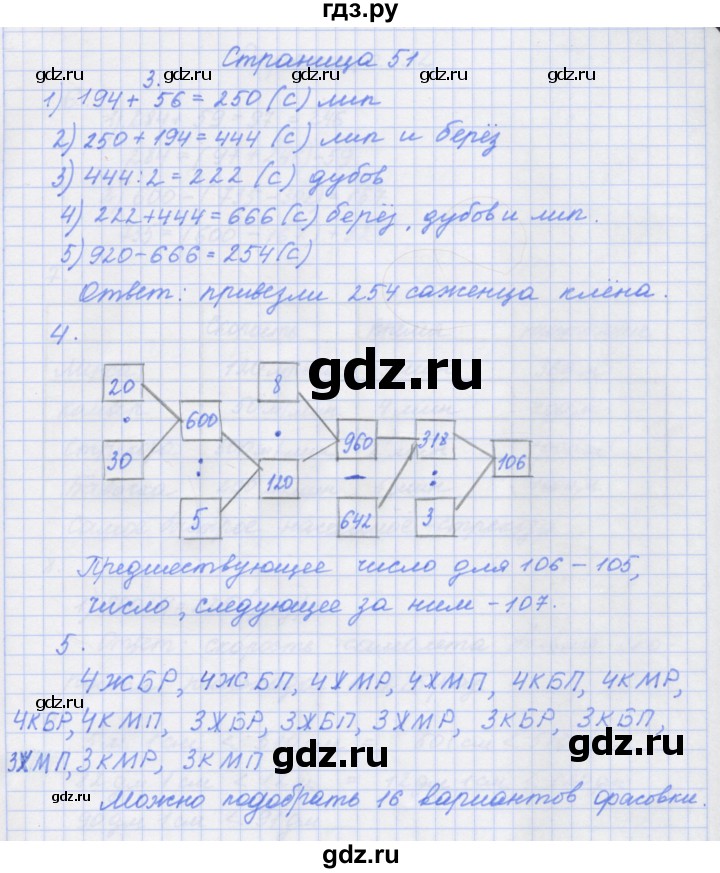 гдз.ру
Страница 51
gdz.ru gdz.ru gdz.ru gdz.ru
3.
1) 194 + 56 = 250 (с) лип
2) 250 + 194 = 444 (с) лип и берёз
3) 444 : 2 = 222 (с) дубов
4) 222 + 444 = 666 (с) берёз, дубов и лип.
gdz.ru gdz.ru gdz.ru
5) 920 - 666 = 254 (с)
Ответ: привезли 254 саженца клёна.
4.
gdz.ru
20 8
· 600 ·
960 318
30 : 120 - : 106
5 642 3
gdz.ru gdz.ru gdz.ru gdz.ru
Предшествующее число для 106 - 105,
число, следующее за ним - 107.
5.
4ЖБР, 4ЖБП, 4ХМР, 4ХМП, 4КБП, 4КМР,
gdz.ru gdz.ru gdz.ru
4КБР, 4КМП, 3ХБР, 3ХБП, 3ХМР, 3КБР, 3КБП,
gdz.ru
3ХМП, 3КМР, 3КМП
gdz.ru
gdz.ru gdz.ru gdz.ru
Можно подобрать 16 вариантов фасовки.
gdz.ru